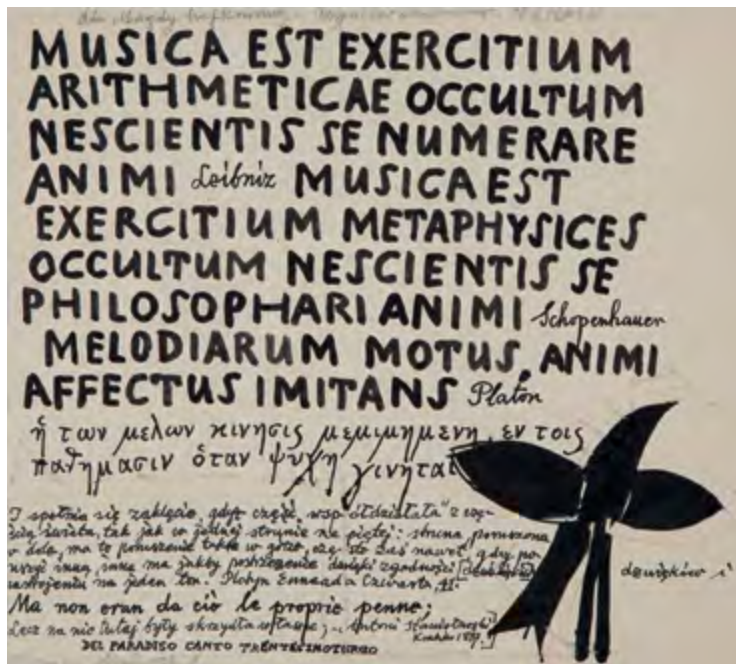 MUSICA EST EXERCITIUM
ARITHMETICAE OCCULTUM
NESCIENTIS SE NUMERARE
ANIMI Leibniz MUSICA EST
EXERCITIUM METAPHYSICES
OCCULTUM NESCIENTIS SE
PHILOSOPHARI ANIMI Schopenhauer
MELODIARUM MOTUS, ANIMI
AFFECTUS IMITANS Platon
ἡ των μελων κινησις μεμιμημενη, εν τοις
παθημασιν ὁταν ψυχη γινηται
I spełnia się zaklęcie, gdyż część współdziała z
świata, tak jak w jednej strunie na piętej: struna poruszona
w dole, ma to poruszenie także w górze, często zaś nawet, gdy
inną, ma jakby postrzeżenie dzięki zgodności
dźwięków i
nastrojeniu na jeden ton. Plotyn Enneada Czwarta, 41.
Ma non eran da ciò le proprie penne;
Lecz na nic tutaj były skrzydła własne; Antoni
Kraków
DEL PARADISO CANTO